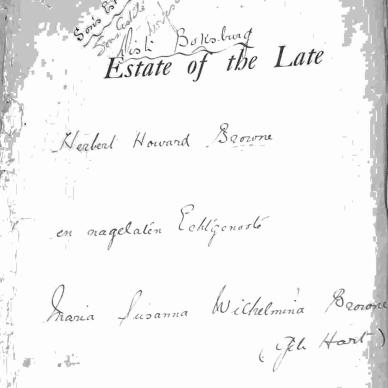 Dist: Boksburg
Estate of the Late
Herbert Howard Browne
en nagelaten Echtgenoote
Maria Susanna Wilhelmina Browne
(geb Hart)